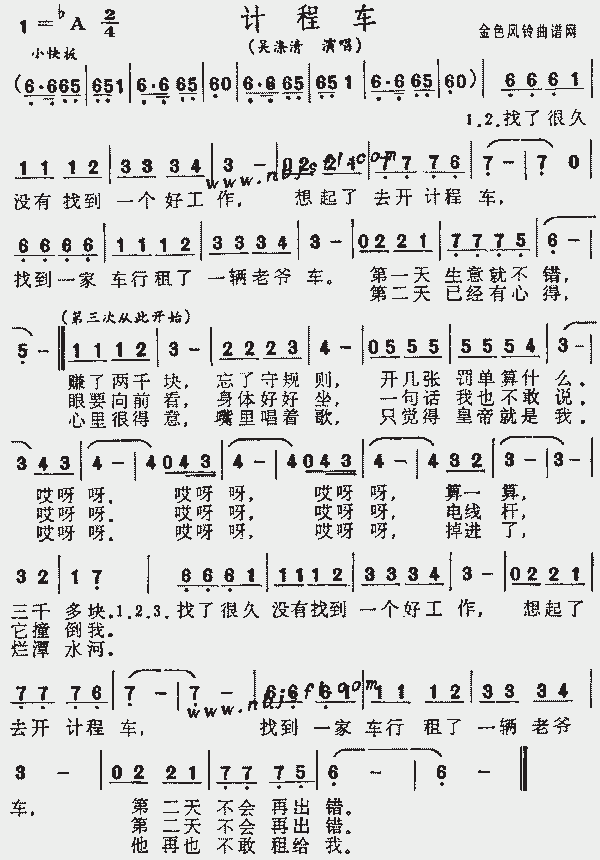 1=♭A 2/4 计程车
(吴涤清 演唱) 金色风铃曲谱网
小快板
(6·665 | 651 | 6·6 65 | 60 | 6·665 | 651 | 6·6 65 | 60) | 6 6 6 1
1.2.找了很久
1 1 1 2 | 3 3 3 4 | 3 - | 0 2 2 1 | 7 7 7 6 | 7 - | 7 0
www.nbjcfl.com
没有 找到 一个 好工 作， 想起了 去开 计程 车，
6 6 6 6 | 1 1 1 2 | 3 3 3 4 | 3 - | 0 2 2 1 | 7 7 7 5 | 6 -
找到一家 车行租了 一辆老爷 车。 第一天 生意就不 错，
第二天 已经有心 得，
(第三次从此开始)
5 - ‖ 1 1 1 2 | 3 - | 2 2 2 3 | 4 - | 0 5 5 5 | 5 5 5 4 | 3 -
赚了两千 块， 忘了守规 则， 开几张 罚单算什 么。
眼要向前 看， 身体好好 坐， 一句话 我也不敢 说。
心里很得 意， 嘴里唱着 歌， 只觉得 皇帝就是 我。
3 4 3 | 4 - | 4 0 4 3 | 4 - | 4 0 4 3 | 4 - | 4 3 2 | 3 - | 3 -
哎呀 呀。 哎呀 呀， 哎呀 呀， 算一 算，
哎呀 呀。 哎呀 呀， 哎呀 呀， 电线 杆，
哎呀 呀。 哎呀 呀， 哎呀 呀， 掉进 了，
3 2 | 1 7 | 6 6 6 1 | 1 1 1 2 | 3 3 3 4 | 3 - | 0 2 2 1
三千 多块。1.2.3.找了很久 没有找到 一个好工 作， 想起了
它撞 倒我。
烂潭 水河。
7 7 7 6 | 7 - | 7 - | 6 6 6 1 | 1 1 1 2 | 3 3 3 4
去开 计程 车， 找到 一家 车行 租了 一辆 老爷
3 - | 0 2 2 1 | 7 7 7 5 | 6 - | 6 -
车， 第 二天 不会 再出 错。
第 二天 不会 再出 错。
他 再也 不敢 租给 我。